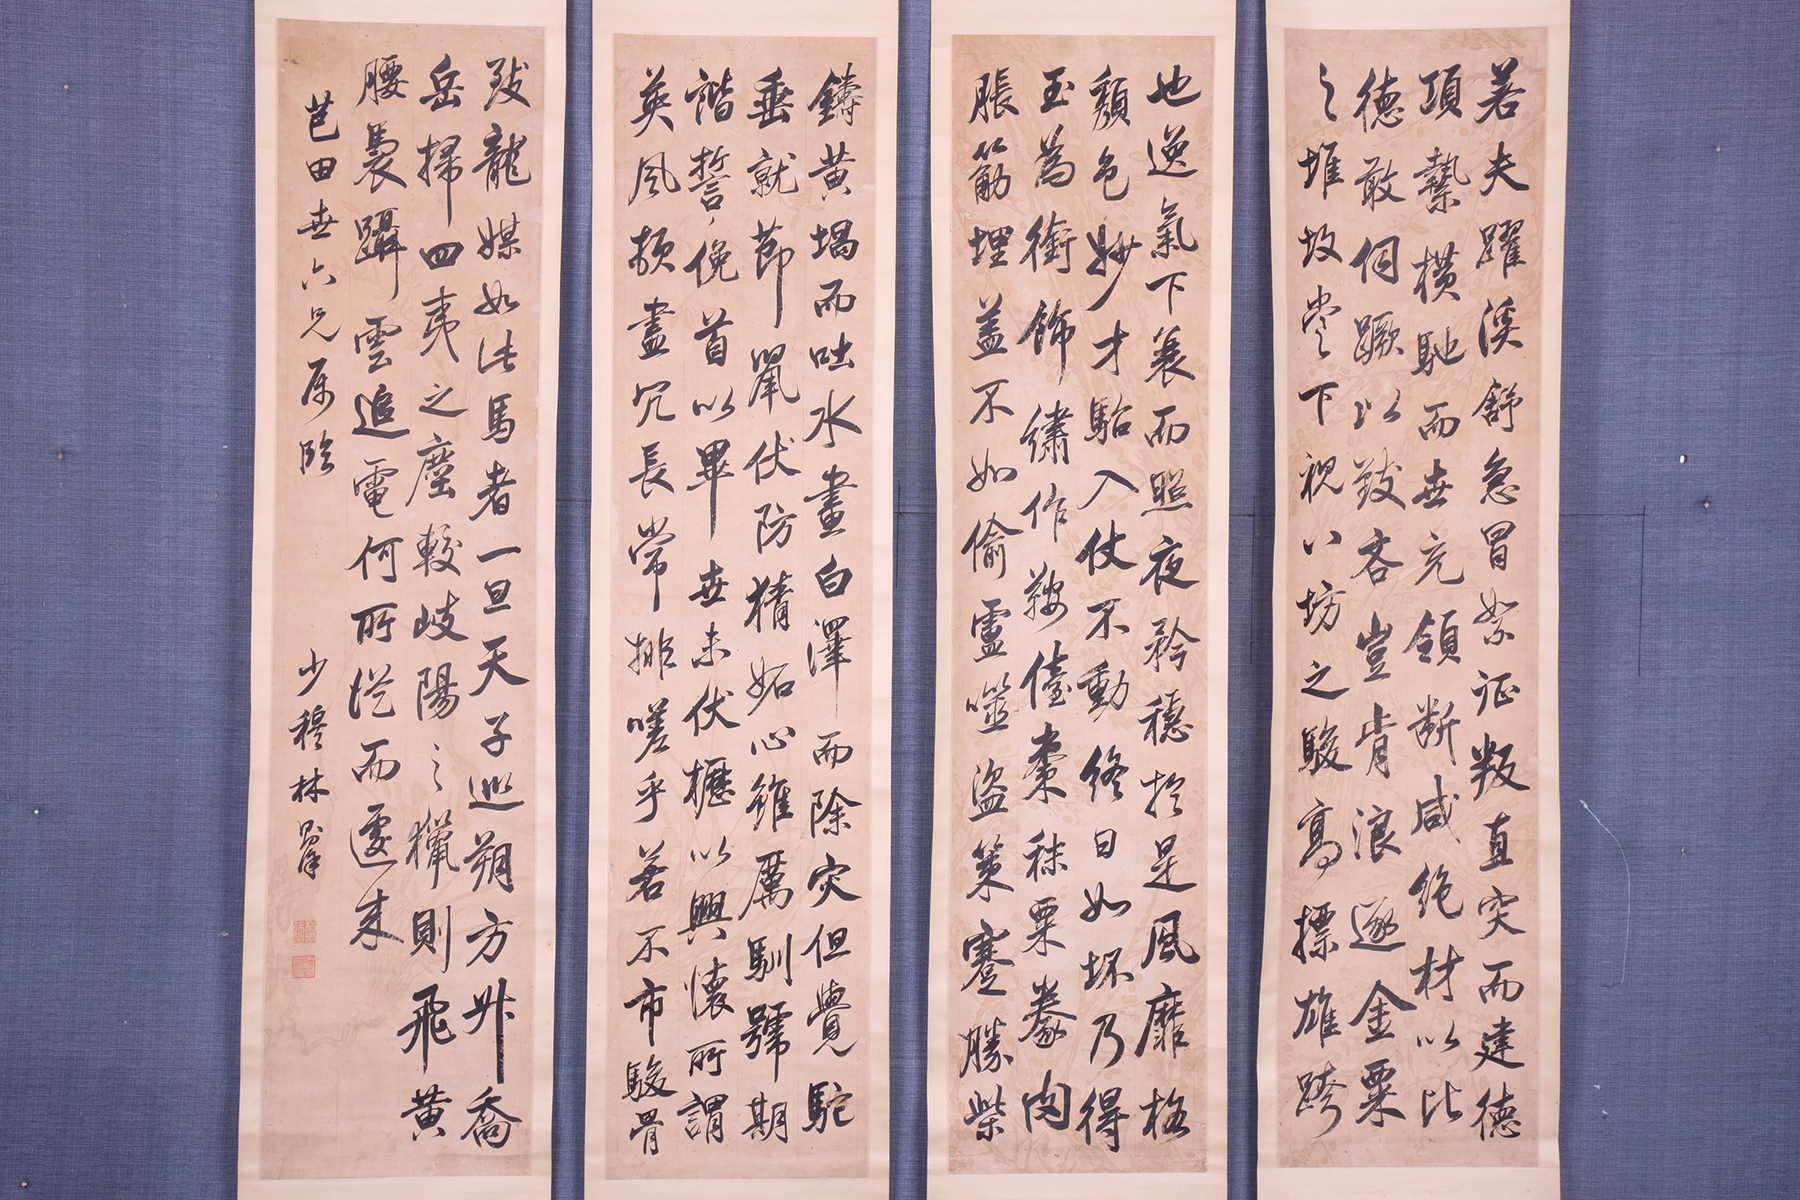 若夫躍溪舒急冒絮征叛直突而建德
項縶橫馳而世充領斷咸絶材以比
德敢伺蹶以致吝豈肯浪逐金粟
之堆坎壈下視八坊之駿高摽雄跨
也逸氣下衰而照夜矜穩於是風靡格
頹色妙才駘入仗不動終日如坏乃得
玉為銜飾繡作鞍儓棗秣粟豢肉
脹筋埋蓋不如偷盧噬盜策蹇勝柴
鑄黃堝而吐水畫白澤而除灾但覺駝
垂就節鼠伏防猜妬心雖厲馴號期
諧誓俛首以畢世未伏櫪以興懷所謂
英風頓盡冗長常排嗟乎若不市駿骨
致龍媒如此馬者一旦天子巡朔方升喬
岳掃四夷之塵較岐陽之獵則飛黃
腰褭躡雲追電何所從而遽来
芑田世六兄屬臨
少穆林則徐